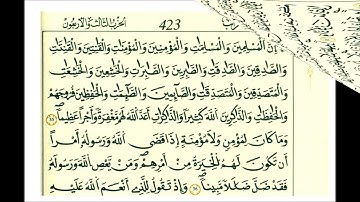 الحزب الثالث والأربعون 423
إِنَّ الْمُسْلِمِينَ وَالْمُسْلِمَاتِ وَالْمُؤْمِنِينَ وَالْمُؤْمِنَاتِ وَالْقَٰنِتِينَ وَالْقَٰنِتَٰتِ
وَالصَّٰدِقِينَ وَالصَّٰدِقَٰتِ وَالصَّٰبِرِينَ وَالصَّٰبِرَٰتِ وَالْخَٰشِعِينَ وَالْخَٰشِعَٰتِ
وَالْمُتَصَدِّقِينَ وَالْمُتَصَدِّقَٰتِ وَالصَّٰٓئِمِينَ وَالصَّٰٓئِمَٰتِ وَالْحَٰفِظِينَ فُرُوجَهُمْ
وَالْحَٰفِظَٰتِ وَالذَّٰكِرِينَ اللَّهَ كَثِيرًا وَالذَّٰكِرَٰتِ أَعَدَّ اللَّهُ لَهُم مَّغْفِرَةً وَأَجْرًا عَظِيمًا
وَمَا كَانَ لِمُؤْمِنٍ وَلَا مُؤْمِنَةٍ إِذَا قَضَى اللَّهُ وَرَسُولُهُ أَمْرًا
أَن تَكُونَ لَهُمُ الْخِيَرَةُ مِنْ أَمْرِهِمْ وَمَنْ يَعْصِ اللَّهَ وَرَسُولَهُ
فَقَد ضَّلَّ ضَلَٰلًا مُّبِينًا وَإِذْ تَقُولُ لِلَّذِي أَنْعَمَ اللَّهُ عَلَيْهِ